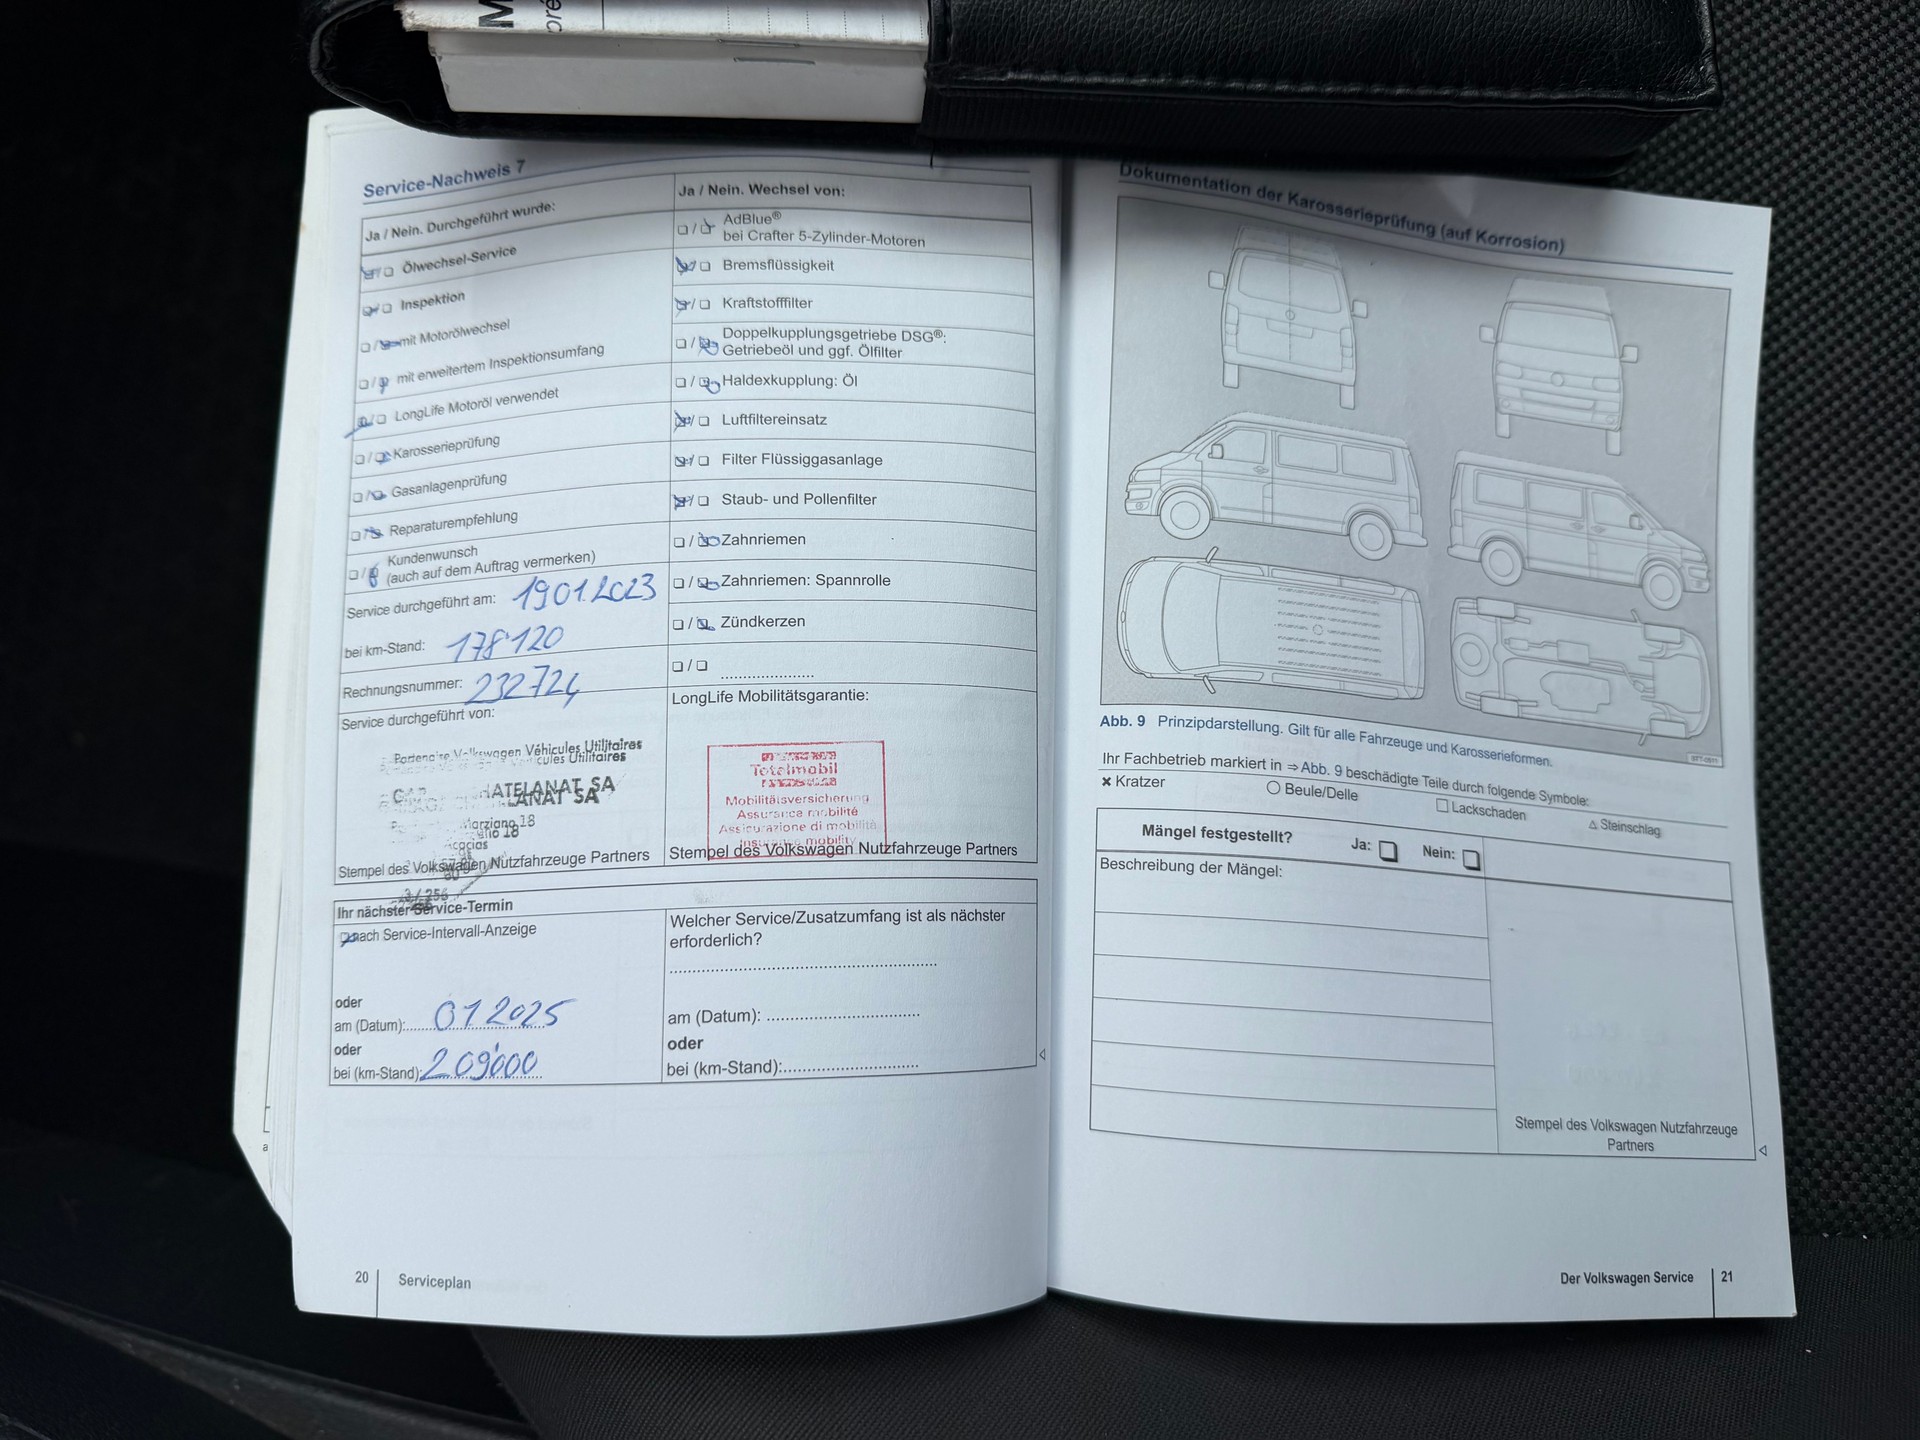 M
pré
Service-Nachweis 7
Ja / Nein. Durchgeführt wurde:
Ölwechsel-Service
Inspektion
mit Motorölwechsel
mit erweitertem Inspektionsumfang
LongLife Motoröl verwendet
Karosserieprüfung
Gasanlagenprüfung
Reparaturempfehlung
Kundenwunsch
(auch auf dem Auftrag vermerken)
Service durchgeführt am: 19.01.2023
bei km-Stand: 178'120
Rechnungsnummer: 232724
Service durchgeführt von:
Partenaire Volkswagen Véhicules Utilitaires
HATELANAT SA
Marziano 18
Acacias
Stempel des Volkswagen Nutzfahrzeuge Partners
Ja / Nein. Wechsel von:
AdBlue®
bei Crafter 5-Zylinder-Motoren
Bremsflüssigkeit
Kraftstofffilter
Doppelkupplungsgetriebe DSG®:
Getriebeöl und ggf. Ölfilter
Haldexkupplung: Öl
Luftfiltereinsatz
Filter Flüssiggasanlage
Staub- und Pollenfilter
Zahnriemen
Zahnriemen: Spannrolle
Zündkerzen
LongLife Mobilitätsgarantie:
Totalmobil
Mobilitätsversicherung
Assurance mobilité
Assicurazione di mobilità
Insurance mobility
Stempel des Volkswagen Nutzfahrzeuge Partners
Ihr nächster Service-Termin
nach Service-Intervall-Anzeige
oder
am (Datum): 01 2025
oder
bei (km-Stand): 209'000
Welcher Service/Zusatzumfang ist als nächster
erforderlich?
am (Datum):
oder
bei (km-Stand):
20 Serviceplan
Dokumentation der Karosserieprüfung (auf Korrosion)
Abb. 9 Prinzipdarstellung. Gilt für alle Fahrzeuge und Karosserieformen.
Ihr Fachbetrieb markiert in ⇒Abb. 9 beschädigte Teile durch folgende Symbole:
× Kratzer ○ Beule/Delle □ Lackschaden △ Steinschlag
Mängel festgestellt? Ja: Nein:
Beschreibung der Mängel:
Stempel des Volkswagen Nutzfahrzeuge
Partners
Der Volkswagen Service 21